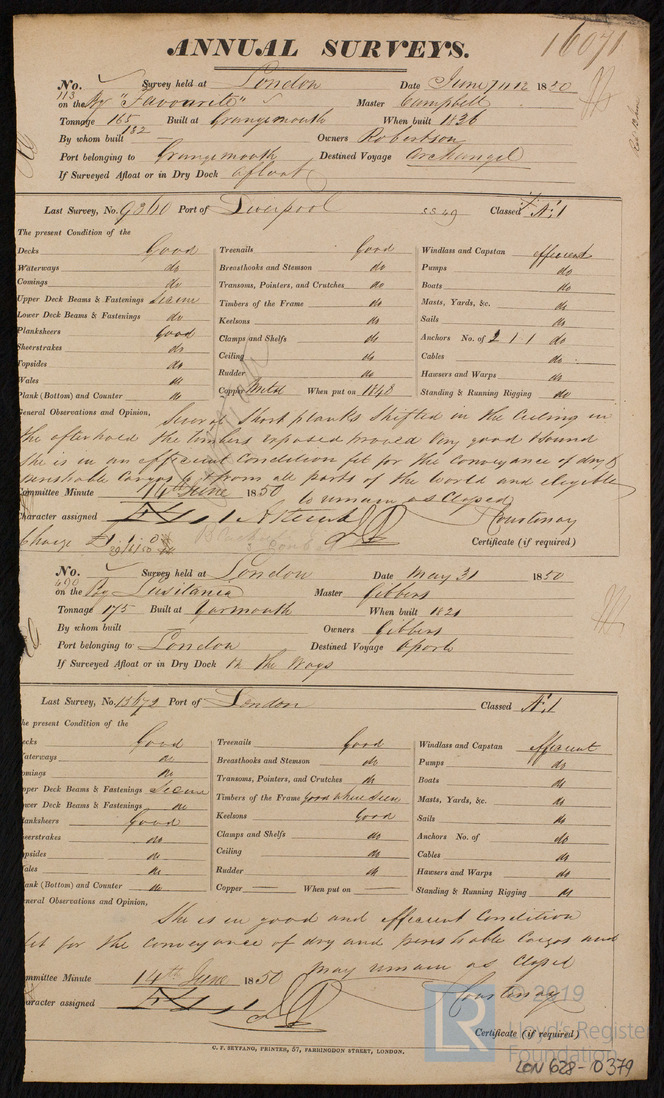 ANNUAL SURVEYS.
16071
No. 113 Survey held at London Date June 7 11 12 1850
on the Bg "Favourite" Master Campbell
Tonnage 165 132 Built at Grangemouth When built 1826
By whom built — Owners Robertson
Port belonging to Grangemouth Destined Voyage Archangel
If Surveyed Afloat or in Dry Dock afloat
Last Survey, No. 9360 Port of Liverpool Classed Æ 1
The present Condition of the
Decks Good Treenails Good Windlass and Capstan efficient
Waterways do Breasthooks and Stemson do Pumps do
Comings do Transoms, Pointers, and Crutches do Boats do
Upper Deck Beams & Fastenings Secure Timbers of the Frame do Masts, Yards, &c. do
Lower Deck Beams & Fastenings do Keelsons do Sails do
Planksheers Good Clamps and Shelfs do Anchors No. of 2 1 1 do
Sheerstrakes do Ceiling do Cables do
Topsides do Rudder do Hawsers and Warps do
Wales do Copper Metal When put on 1848 Standing & Running Rigging do
Plank (Bottom) and Counter do
General Observations and Opinion, Several short planks shifted in the Ceiling in
the afterhold the timbers exposed proved very good & Sound
She is in an efficient Condition fit for the Conveyance of dry &
perishable Cargoes to & from all parts of the World and eligible
to remain as Classed
Committee Minute 14th June 1850
Character assigned Æ 1 Courtenay
Charge £1.1.0 Certificate (if required)
No. 490 Survey held at London Date May 31 1850
on the Bg Lusitania Master Gibbens
Tonnage 175 Built at Yarmouth When built 1821
By whom built Owners Gibbens
Port belonging to London Destined Voyage Oporto
If Surveyed Afloat or in Dry Dock In the Ways
Last Survey, No. 15672 Port of London Classed Æ 1
The present Condition of the
ecks Good Treenails Good Windlass and Capstan efficient
aterways do Breasthooks and Stemson do Pumps do
omings do Transoms, Pointers, and Crutches do Boats do
pper Deck Beams & Fastenings Secure Timbers of the Frame good where seen Masts, Yards, &c. do
wer Deck Beams & Fastenings do Keelsons Good Sails do
anksheers Good Clamps and Shelfs do Anchors No. of do
eerstrakes do Ceiling do Cables do
psides do Rudder do Hawsers and Warps do
ales do Copper — When put on — Standing & Running Rigging do
ank (Bottom) and Counter do
eneral Observations and Opinion,
She is in good and efficient Condition
fit for the Conveyance of dry and perishable Cargos and
may remain as Classed
mmittee Minute 14th June 1850
aracter assigned Æ 1 Courtenay
Certificate (if required)
C. F. SEYFANG, PRINTER, 57, FARRINGDON STREET, LONDON.
LR © 2019
Lloyd's Register
Foundation
LON 628-0379